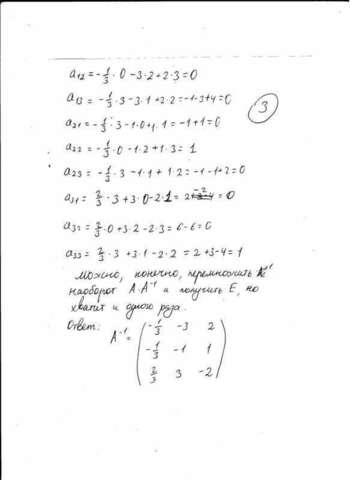 a₁₂ = -1/3 · 0 - 3 · 2 + 2 · 3 = 0
a₁₃ = -1/3 · 3 - 3 · 1 + 2 · 2 = -1 - 3 + 4 = 0
3
a₂₁ = -1/3 · 3 - 1 · 0 + 1 · 1 = -1 + 1 = 0
a₂₂ = -1/3 · 0 - 1 · 2 + 1 · 3 = 1
a₂₃ = -1/3 · 3 - 1 · 1 + 1 · 2 = -1 - 1 + 2 = 0
a₃₁ = 2/3 · 3 + 3 · 0 - 2 · 1 = 2 - 2 = 0
a₃₂ = 2/3 · 0 + 3 · 2 - 2 · 3 = 6 - 6 = 0
a₃₃ = 2/3 · 3 + 3 · 1 - 2 · 2 = 2 + 3 - 4 = 1
Можно, конечно, перемножить и
наоборот A · A⁻¹ и получить E, но
хватит и одного раза.
Ответ:
A⁻¹ = ( -1/3 -3 2
-1/3 -1 1
2/3 3 -2 )